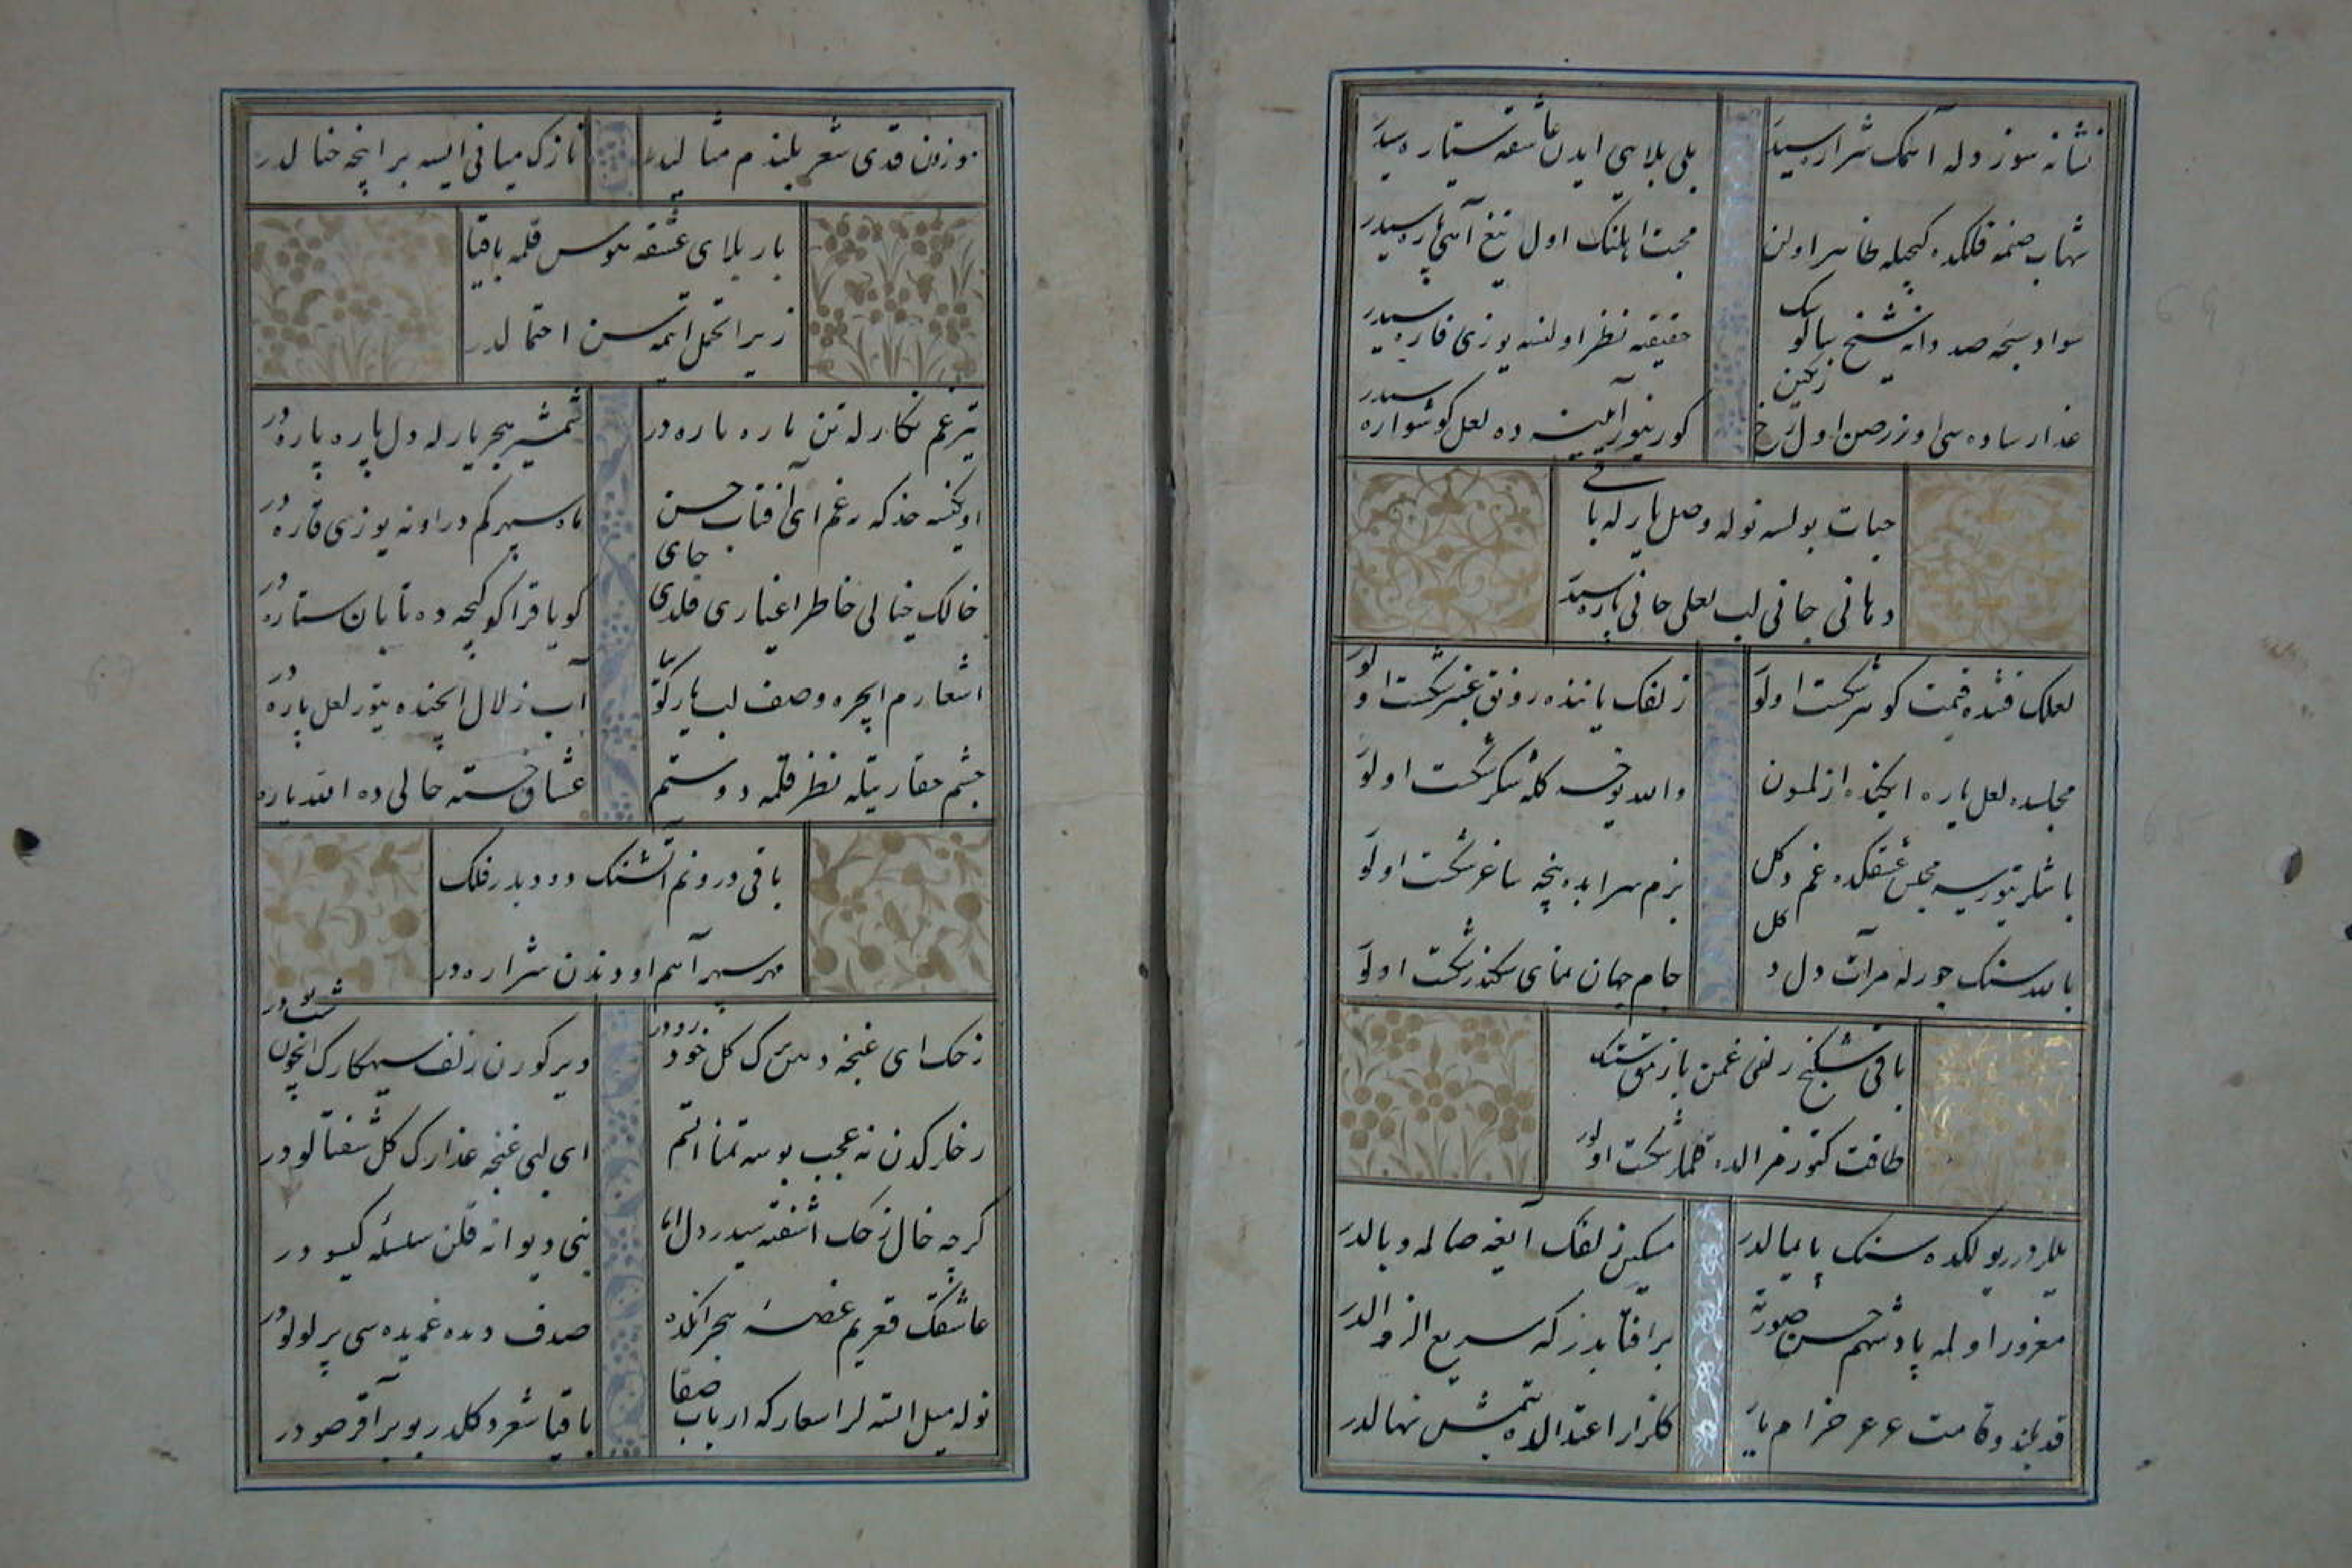 نشانه سوز دله آهمك شراره سیدر
بلی بلایی ایدن عاشقه ستاره سیدر
شهاب صنمه فلكده كیجیله ظاهر اولن
محبت اهلنك اول تیغ آهی پاره سیدر
سواد سبحه صد دانه شیخ سالوسك
حقیقته نظر اولنسه یوزی قاره سیدر
عذار ساده سی اوزره صن اول رخ رنكین
كورینور آیینه ده لعل كوشواره سیدر
حیات بولسه نوله وصل یار له باقی
دهانی جانی لب لعلی جانی پاره سیدر
لعلك قتنده قیمت كوهر شكست اولور
زلفك یاننده رونق عنبر شكست اولور
مجلسده لعل یاره ایكنده ازلمسون
والله یوخسه كله شكر شكست اولور
باشلر یتورسه مجلس عشقكده غم دكل
بزم سرابده نیجه ساغر شكست اولور
بالله سنك جورله مرآت دل دكل
جام جهان نمای سكندر شكست اولور
باقی شكنج زلفی غمن یازمق استسك
طاقت كتورمز الده قلملر شكست اولور
یللر دورر یولكده سنك پایمالدر
مسكین زلفك آیغه صالمه وبالدر
مغرور اولمه پادشهم حسن صورته
بر آفتابدر كه سریع الزوالدر
قد بلند و قامت عرعر خرام یار
كلزار اعتدالده یتمش نهالدر
موزون قدی شعر بلندم مثالیدر
نازك میانی ایسه بر اینجه خیالدر
بار بلای عشقه هوس قلمه باقیا
زیرا تحمل ایتمه سن احتمالدر
تیر غم نكارله تن یاره یاره در
شمشیر هجر یارله دل پاره پاره در
اویكنسه خدكه رغم ای آفتاب حسن
ماه سپهر كم در اونه یوزی قاره در
خالك خیالی خاطر اغیاری قلدی جای
كویا قراكو كیجه ده تابان ستاره در
اشعارم ایچره وصف لب یار كوییا
آب زلال ایچنده یتور لعل پاره در
چشم حقارتیله نظر قلمه دوستم
عشاق خسته حالی ده الله یاره در
باقی درونم آتشنك دودیدر فلك
مهر سپهر آهم اودندن شراره در
زخك ای غنجه دهن كل خودرودر
دیر كورن زلف سیهكارك ایچون شب بودر
رخلركدن نه عجب بوسه تمنا اتسم
ای لبی غنجه عذارك كل شفتالودر
كرچه خال زخك آشفته سیدر دل اما
بنی دیوانه قلن سلسله كیسودر
عاشقك قعریم غصه هجرانكده
صدف دیده غمدیده سی پر لولودر
نوله میل اتسه لر اشعاركه ارباب صفا
باقیا شعر دكلدر بو بر آقر صودر